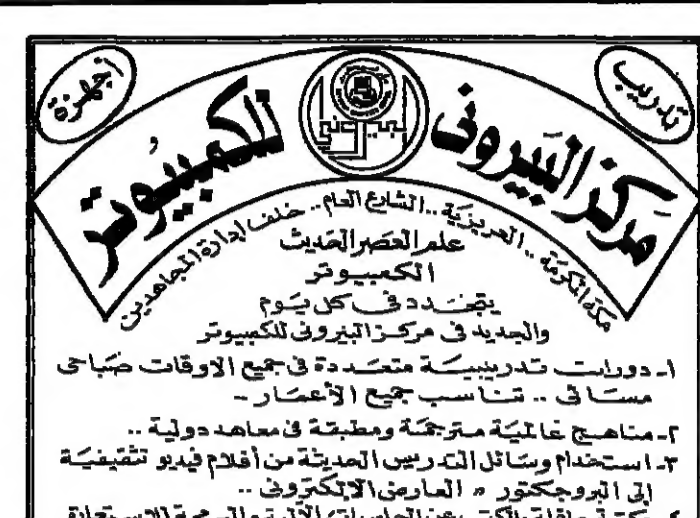 تدريب
أجهزة
مركز البيروني للكمبيوتر
مكة المكرمة .. العزيزية .. الشارع العام .. خلف إدارة المجاهدين
علم العصر الحديث
الكمبيوتر
يتجدد في كل يوم
والجديد في مركز البيروني للكمبيوتر
١- دورات تدريبية متعددة في جميع الاوقات صباحي
مسائي .. تناسب جميع الأعمار -
٢- مناهج عالمية مترجمة ومطبقة في معاهد دولية ..
٣- استخدام وسائل التدريس الحديثة من أفلام فيديو تثقيفية
إلى البروجكتور " العارض الالكتروني ..